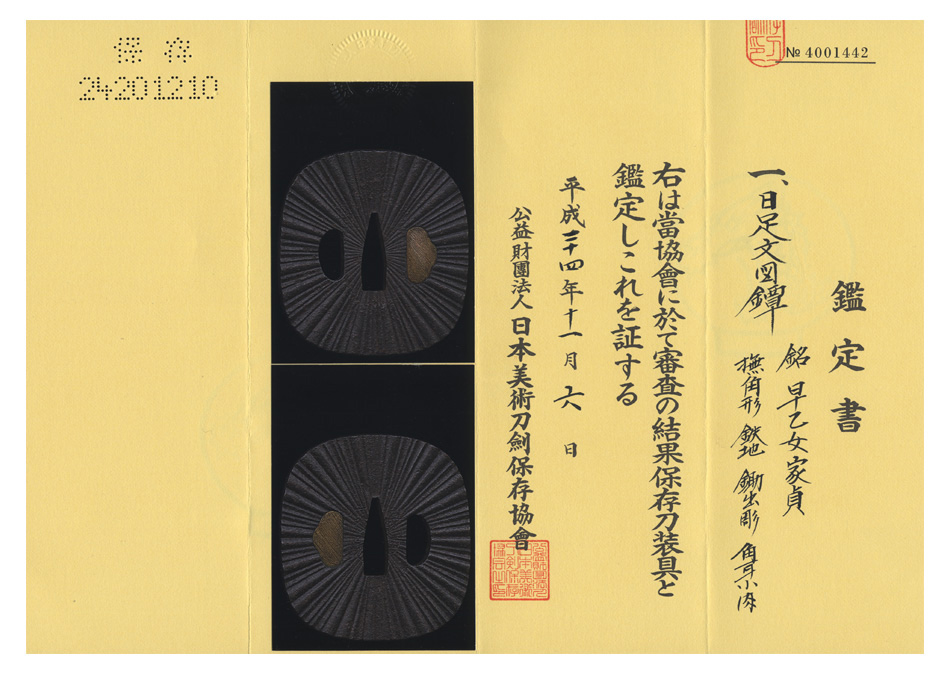 No 4001442
鑑定書
一、日足文図鐔
銘 早乙女家貞
撫角形 鉄地 鋤出彫 角耳小肉
右は當協會に於て審査の結果保存刀装具と
鑑定しこれを証する
平成二十四年十一月六日
公益財團法人日本美術刀劍保存協會
保存
24201210